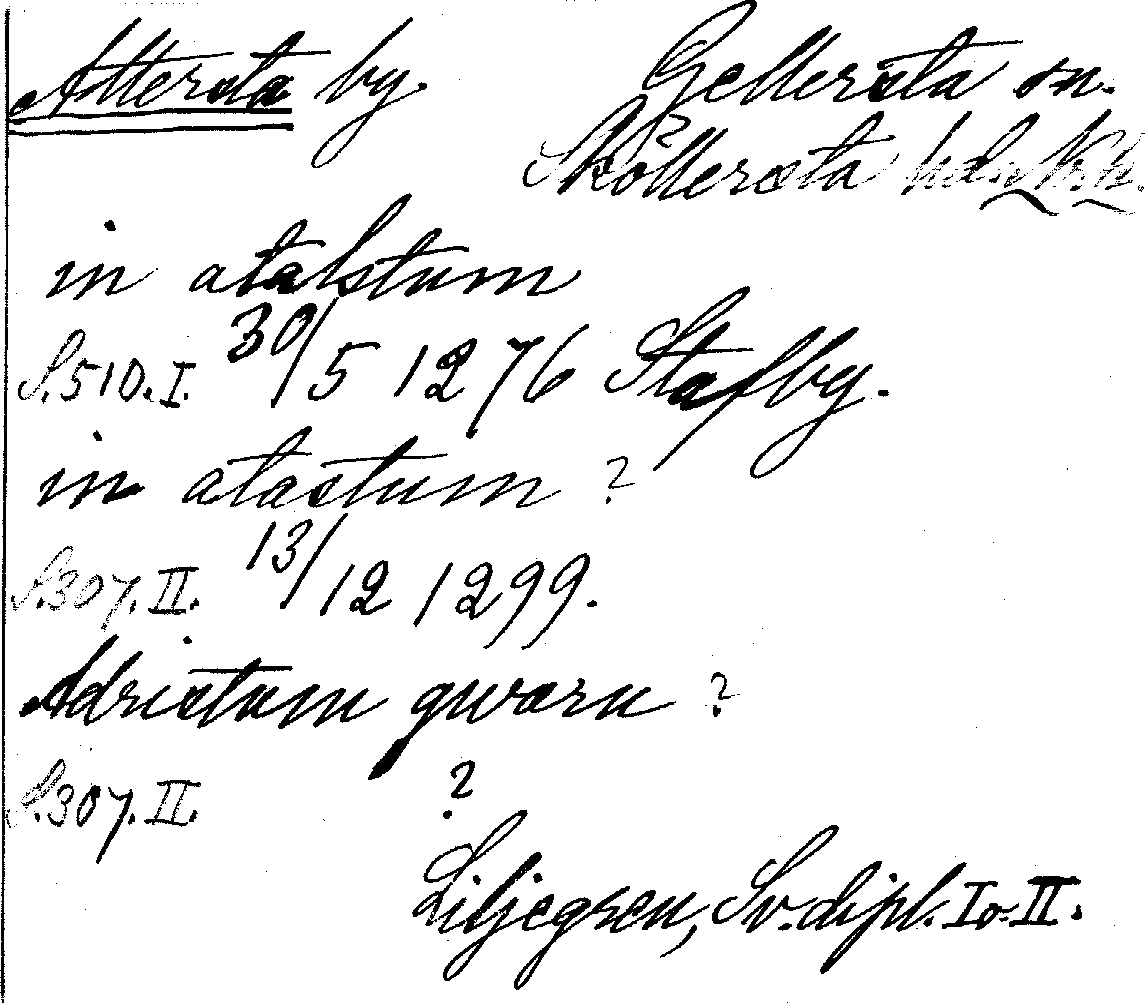 Attersta by. Gellersta sn.
Sköllersta hd. Nrk.
in atalstum
S. 510. I. 30/5 1276 Stafby.
in atastum ?
S. 307. II. 13/12 1299.
Adristum qwarn ?
S. 307. II. ?
Liljegren, Sv. dipl. I o. II.